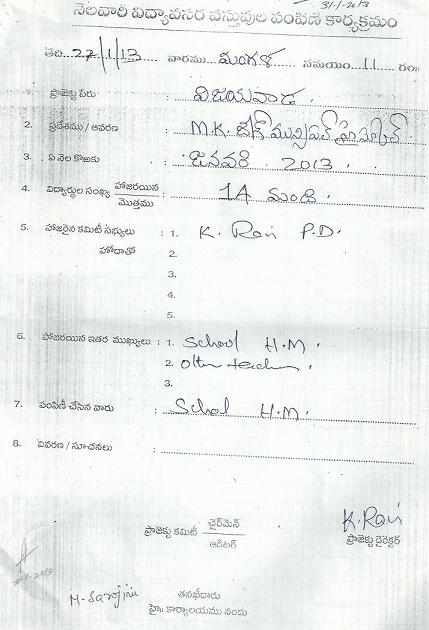 31-1-2013
నెలవారీ విద్యావసర వస్తువుల పంపిణి కార్యక్రమం
తేది 22/1/13 వారము మంగళ సమయం 11 గం॥
1. ప్రాజెక్టు పేరు : విజయవాడ.
2. ప్రదేశము / ఆవరణ : M.K. బేగ్ మున్సిపల్ హైస్కూల్
3. ఏ నెల కొఱకు : జనవరి 2013.
4. విద్యార్థుల సంఖ్య హాజరయిన / మొత్తము : 14 మంది
5. హాజరైన కమిటీ సభ్యులు : 1. K. Ravi P.D.
హోదాతో 2.
3.
4.
5.
6. హాజరయిన ఇతర ముఖ్యులు : 1. School H.M.
2. Other teachers.
3.
7. పంపిణీ చేసిన వారు : School H.M.
8. వివరణ / సూచనలు :
ప్రాజెక్టు కమిటీ చైర్‌మెన్ / ఆడిటర్
K. Ravi
ప్రాజెక్టు డైరెక్టర్
31-1-2013
M. Sarojini
తనఖీదారు
హై॥ కార్యాలయము నందు